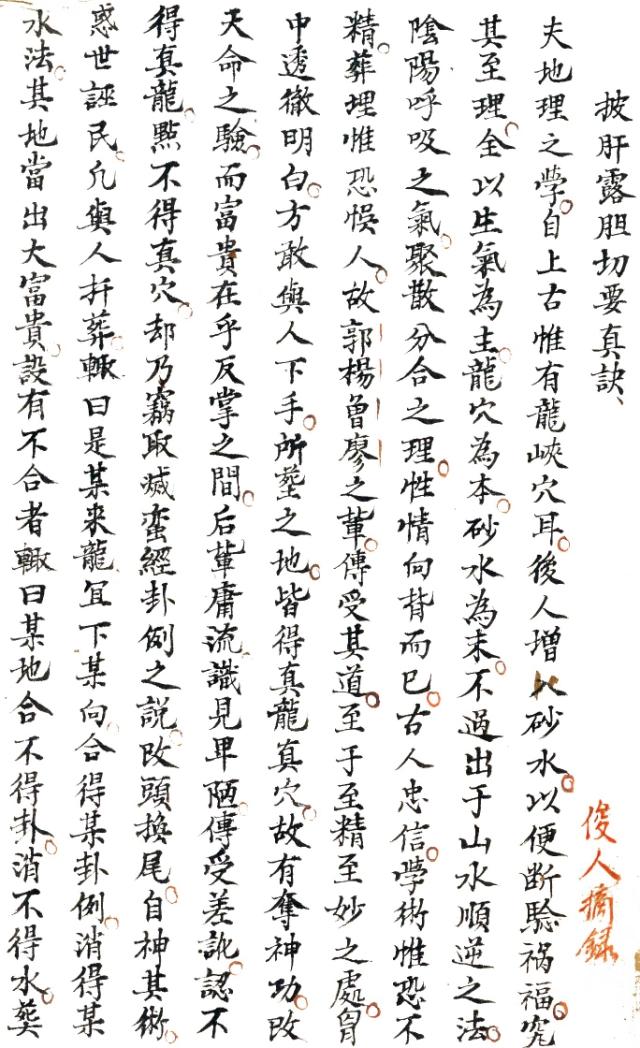 披肝露胆切要真訣、
俊人摘録
夫地理之學自上古惟有龍峽穴耳後人增以砂水以便断驗禍福究
其至理全以生氣為主龍穴為本砂水為末不過出于山水順逆之法
陰陽呼吸之氣聚散分合之理性情向背而已古人忠信學術惟恐不
精葬埋惟恐悞人故郭楊曾廖之軰傳受其道至于至精至妙之處胷
中透徹明白方敢與人下手所塟之地皆得真龍真穴故有奪神功改
天命之驗而富貴在乎反掌之間后軰庸流識見卑陋傳受差訛認不
得真龍點不得真穴却乃竊取滅蛮經卦例之說改頭換尾自神其術
惑世誣民凡與人扦葬輙曰是某来龍宜下某向合得某卦例消得某
水法其地當出大富貴設有不合者輙曰某地合不得卦消不得水塟